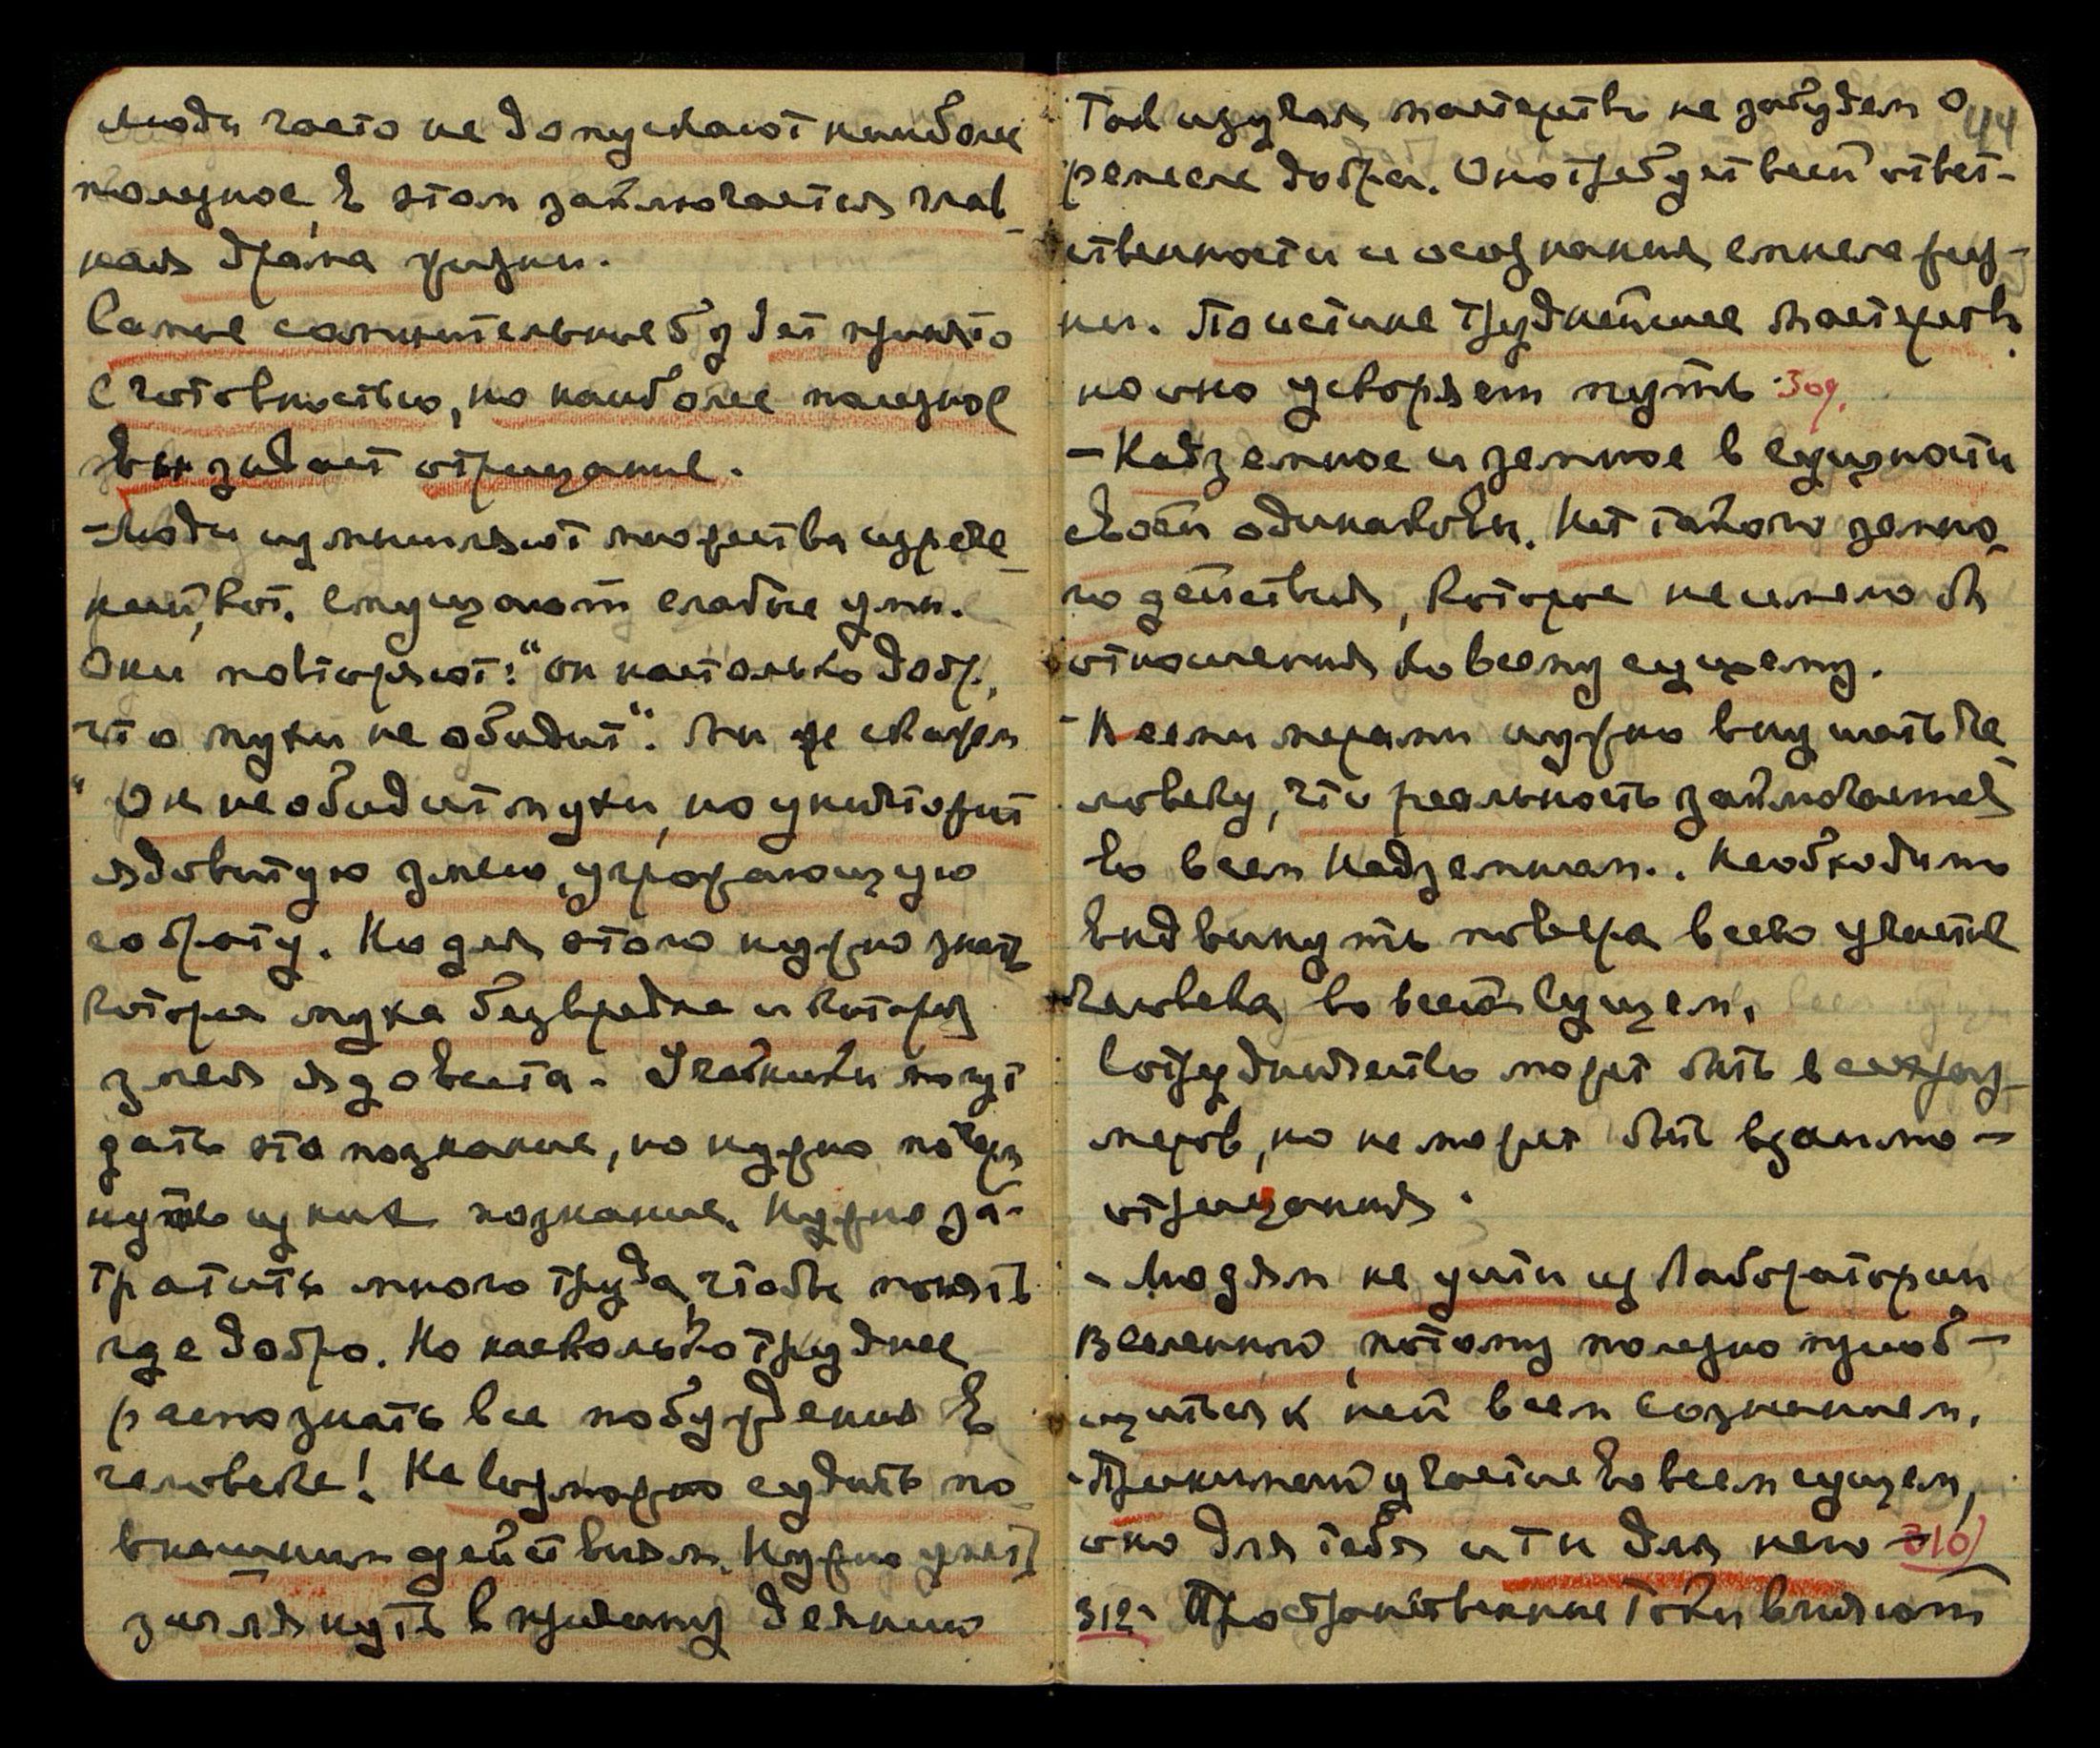 Люди часто не допускают наиболее
полезное, в этом заключается глав-
ная драма жизни.
Самые сомнительные будет принято
с готовностью, но наиболее полезное
вызывает отрицание.
- Люди измышляют множества изрече-
ний, кот. смущают слабые умы.
Они повторяют: "он настолько добр,
что мухи не обидит". Мы же скажем
"Он не обидит мухи, но уничтожит
ядовитую змею, угрожающую
собрату. Но для этого нужно знать
которая муха безвредна и которая
змея ядовита. Учебники могут
дать это познание, но нужно почерп
нуть из них познание. Нужно за-
тратить много труда, чтобы понять
где добро. Но насколько труднее
распознать все побуждения в
человеке! Невозможно судить по
внешним действиям. Нужно уметь
заглянуть в причину деяний
Так изучая мастерств не забудем о 44
ремесле добра. Оно требует всей ответ-
ственности и осознания смысла жиз-
ни. Поистине труднейшее мастерств.
но оно ускоряет путь. 309.
- Надземное и земное в сущности
своей одинаковы. Нет такого земно-
го действия, которое не имело бы
отношения ко всему сущему.
- Всеми мерами нужно внушать че-
ловеку, что реальность заключается
во всем Надземном.. Необходимо
выдвинуть поверх всего участие
человека во всем Сущем.
Сотрудничество может быть
меров, но не может быть взаимо-
отрицания.
- Людям не уйти из Лаборатории
Вселенной, потому полезно приоб-
щиться к ней всем сознанием.
- Принимай участие во всем сущем,
оно для тебя и ты для него - 310)
312 - Пространственные токи влияют